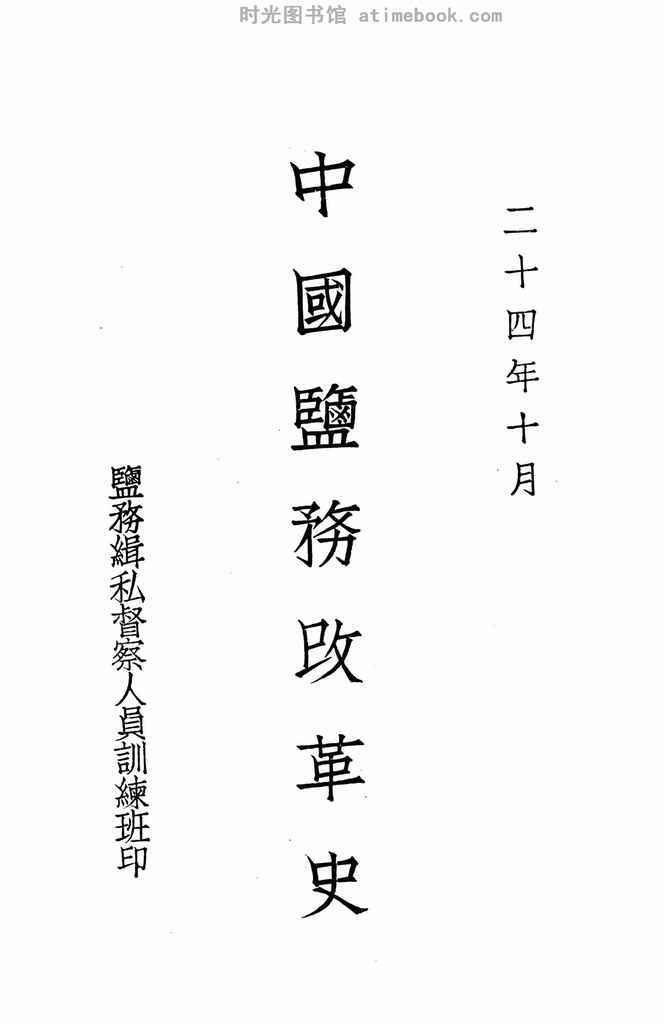 时光图书馆 atimebook.com
二十四年十月
中國鹽務改革史
鹽務緝私督察人員訓練班印